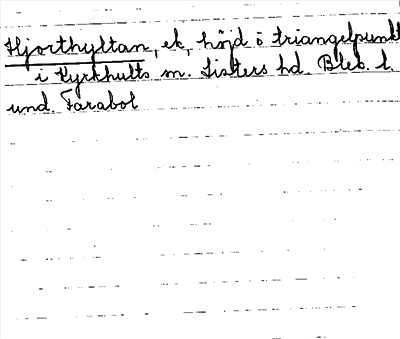 Hjorthyltan, ek, höjd o triangelpunkt
i Kyrkhults sn. Listers hd. Blek. l.
und. Farabol